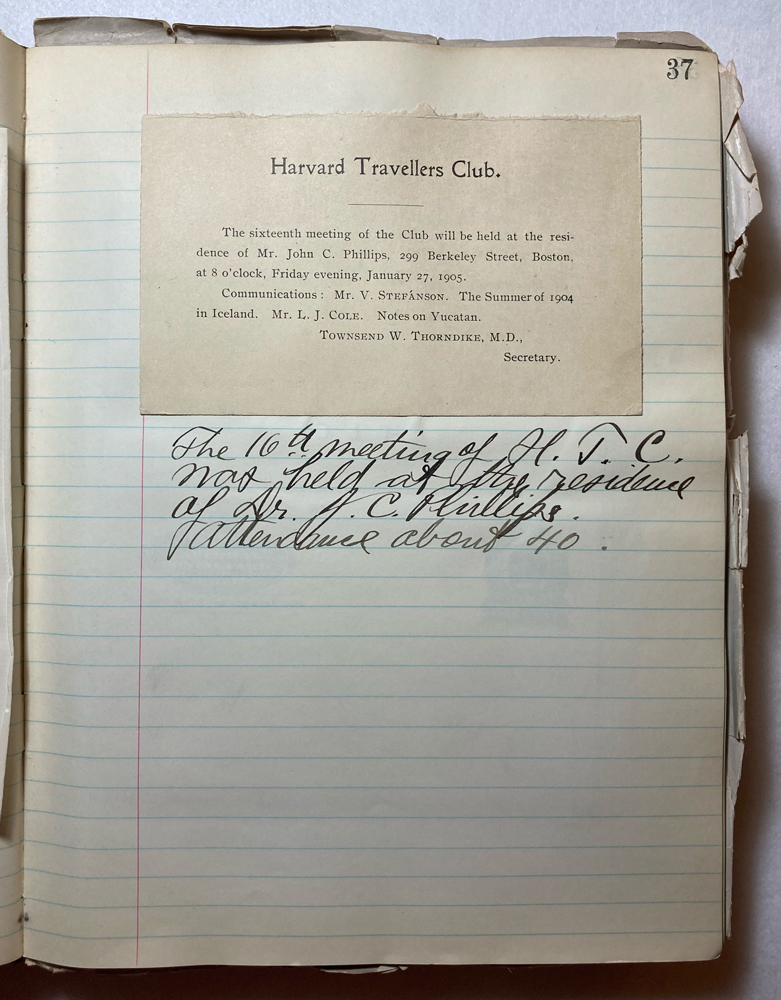 37
Harvard Travellers Club.
The sixteenth meeting of the Club will be held at the resi-
dence of Mr. John C. Phillips, 299 Berkeley Street, Boston,
at 8 o'clock, Friday evening, January 27, 1905.
Communications: Mr. V. STEFÁNSON. The Summer of 1904
in Iceland. Mr. L. J. COLE. Notes on Yucatan.
TOWNSEND W. THORNDIKE, M.D.,
Secretary.
The 16th meeting of H. T. C.
was held at the residence
of Dr. J. C. Phillips.
attendance about 40.